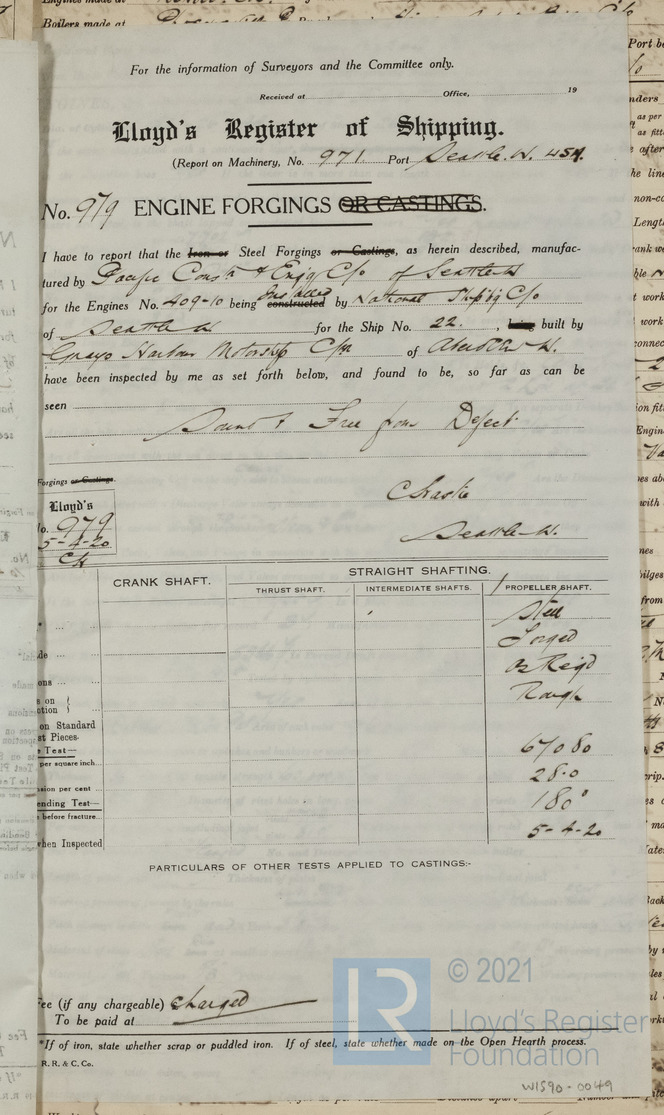 For the information of Surveyors and the Committee only.
Received at Office, 19
Lloyd's Register of Shipping.
(Report on Machinery, No. 971 Port Seattle. W.
No. 979 ENGINE FORGINGS OR CASTINGS.
I have to report that the Iron or Steel Forgings or Castings, as herein described, manufac-
tured by Pacific Const & Engg C/o of Seattle W
for the Engines No. 409-10 being constructed installed by National C/o
of Seattle W for the Ship No. 22. , being built by
Grays Harbour Motorship of Aberdeen W.
have been inspected by me as set forth below, and found to be, so far as can be
seen
Sound & Free from Defect
Forgings or Castings.
Lloyd's
No. 979
5-4-20
Seattle W.
CRANK SHAFT. STRAIGHT SHAFTING.
THRUST SHAFT. INTERMEDIATE SHAFTS. PROPELLER SHAFT.
Steel
Forged
as Reqd
Rough
on Standard
st Pieces.
e Test—
67080
per square inch...
28.0
nsion per cent ...
ending Test—
180°
before fracture...
5-4-20
when Inspected
PARTICULARS OF OTHER TESTS APPLIED TO CASTINGS:-
Fee (if any chargeable) charged
To be paid at
*If of iron, state whether scrap or puddled iron. If of steel, state whether made on the Open Hearth process.
R. R. & C. Co.
© 2021
Lloyd's Register
Foundation
W1590-0049